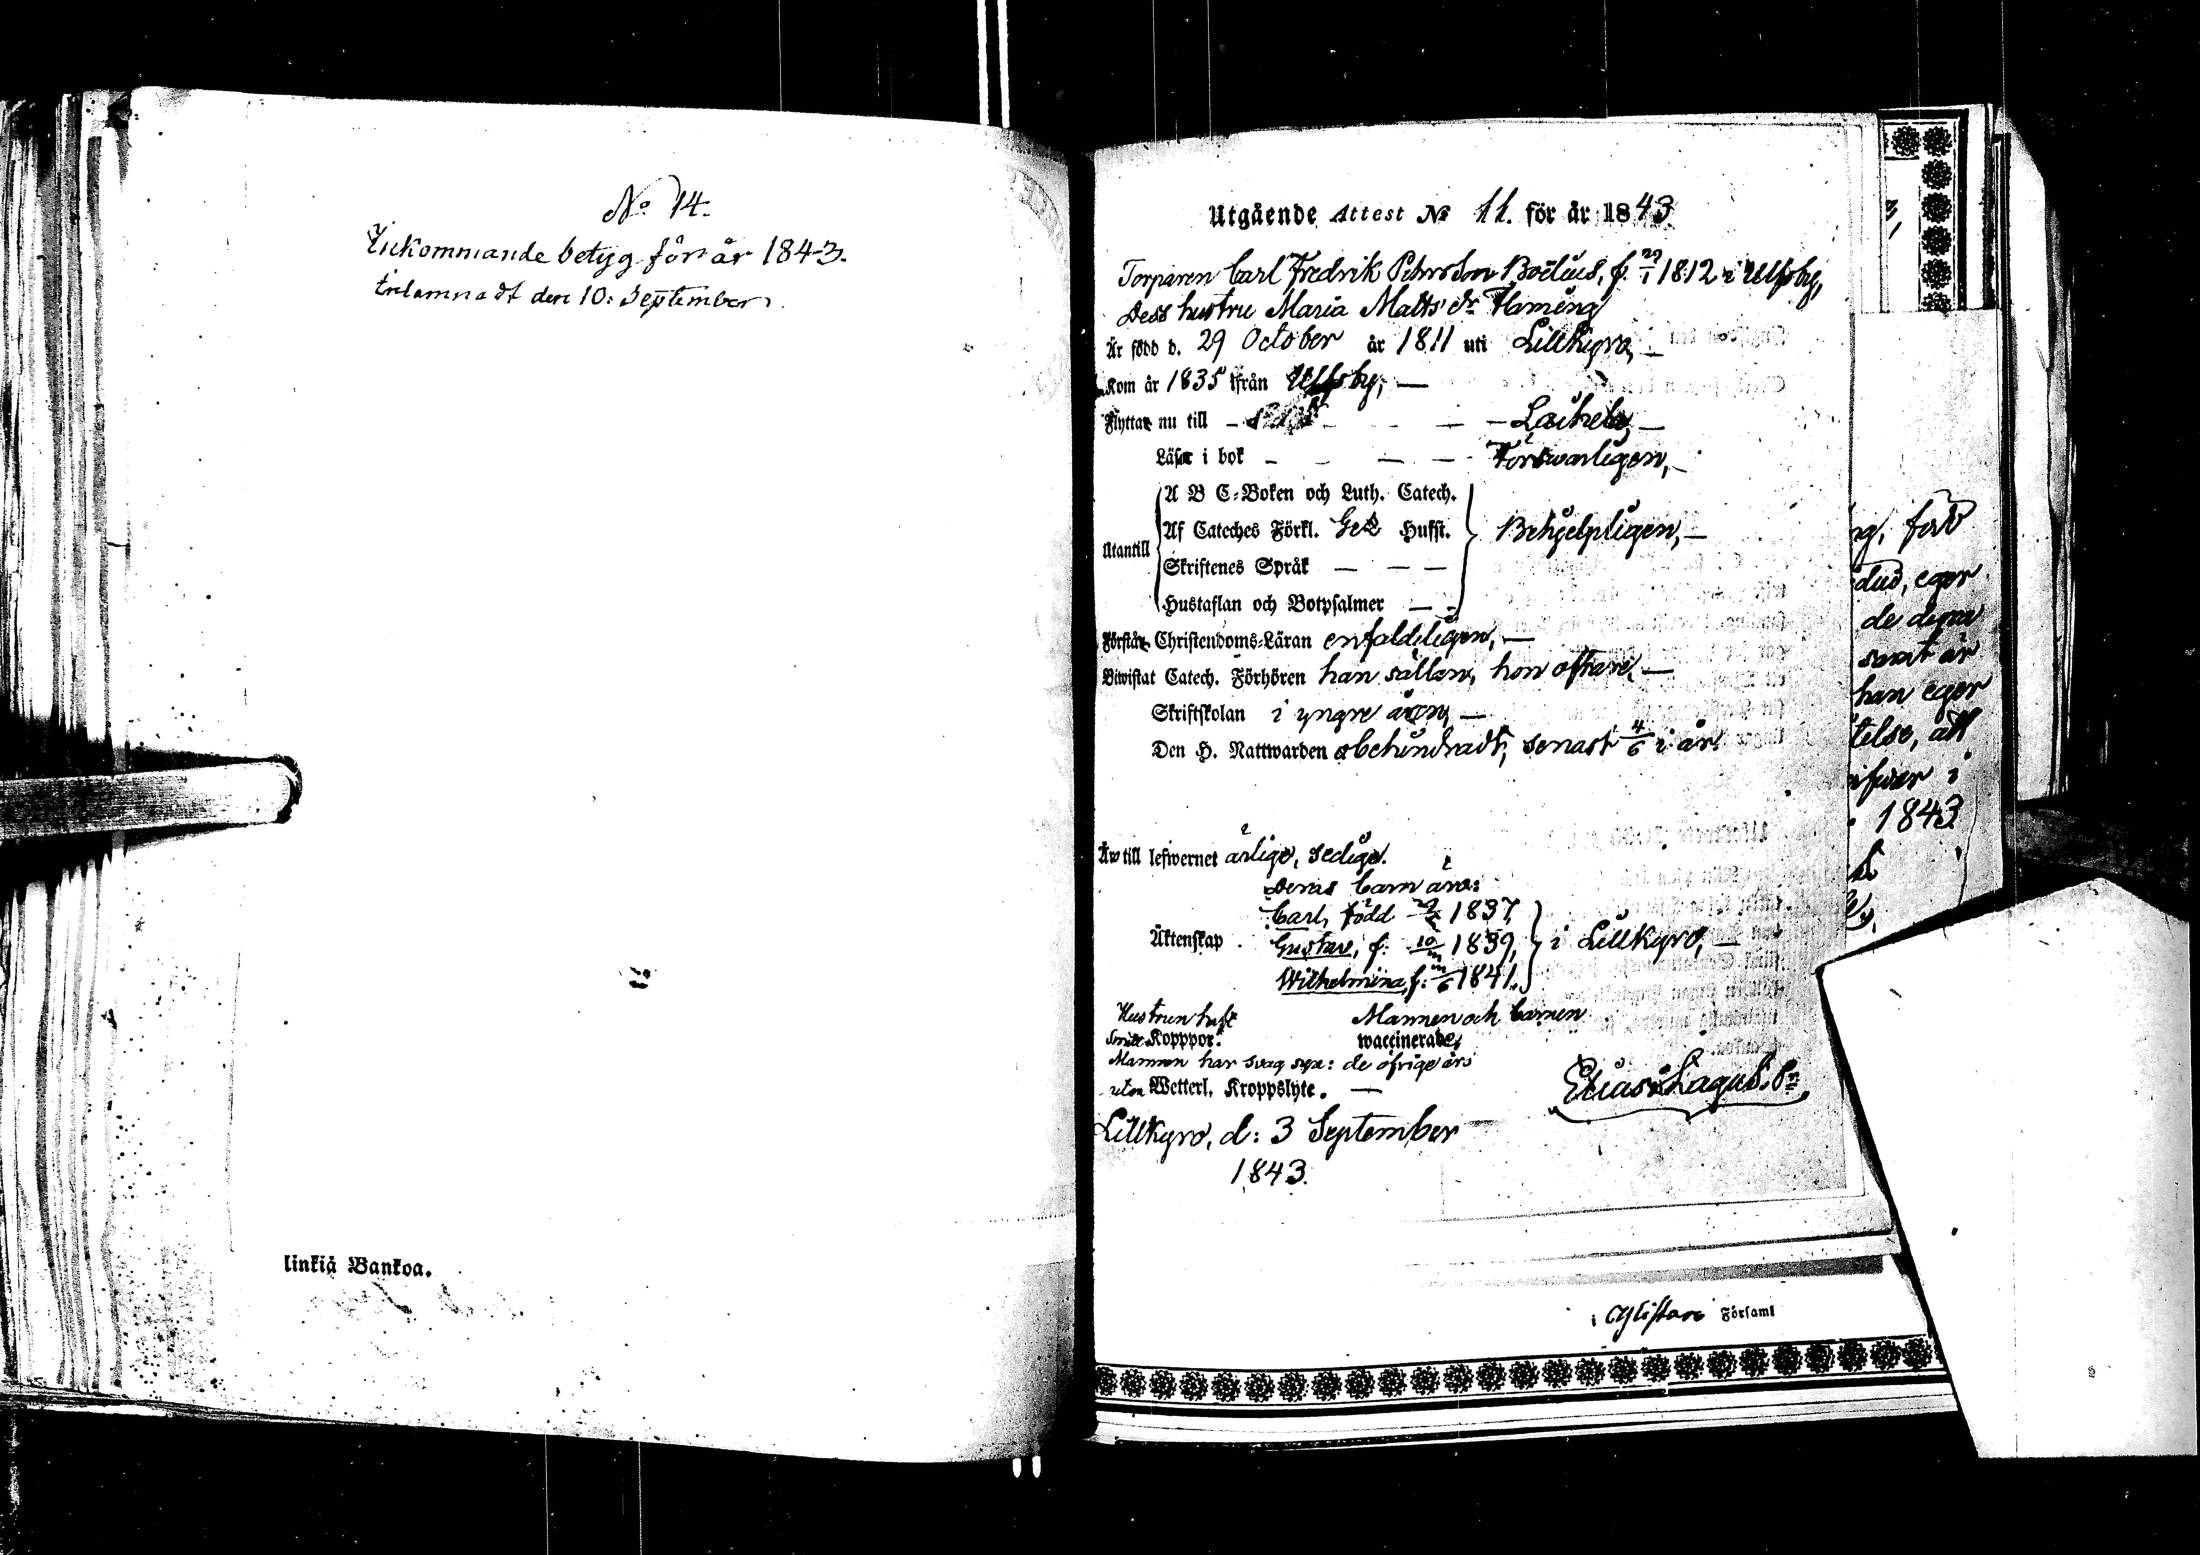 No 14.
Inkommande betyg för år 1843.
Inlämnadt den 10: September.
linkiä Bankoa.
Utgående Attest No 11. för år 1843
Torparen Carl Fredrik Pehrsson Boëlius, f. 1812 i Ulfsby,
Dess hustru Maria Matts dr Flaming
Är född d. 29 October år 1811 uti Lillkyro, —
Kom år 1835 ifrån Ulfsby, —
Flyttar nu till — — — Laihela, —
Läser i bok — — — — Förswarligen, —
A B C-Boken och Luth. Catech.
Af Cateches Förkl. Hufst.
Utantill Behjelpligen, —
Skriftenes Språk — — —
Hustaflan och Botpsalmer — —
Förstår Christendoms-Läran enfaldeligen, —
Biwistat Catech. Förhören han sällan, hon oftare, —
Skriftskolan i yngre åren, —
Den H. Nattwarden obehindradt, senast 4/6 i år.
Är till lefwernet ärlige, sedige.
Deras barn äro:
Carl, född 1837,
Äktenskap . Gustav, f. 1839, i Lillkyro, —
Wilhelmina, f. 1841.
Hustrun haft Mannen och barnen
Koppor. waccinerade,
Mannen har svag syn: de öfrige äro
utan Wetterl. Kroppslyte. —
Elias Lagus. Pr
Lillkyro, d: 3 September
1843.
eger
samt är
han eger
telse, att
i
1843
i Ylistaro Församl